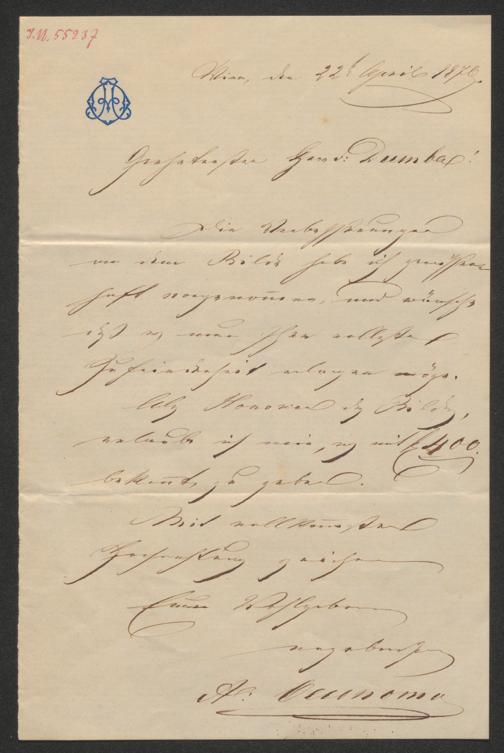 I.N. 55237
Wien, den 22t April 1870.
Geehrtester Herr: Dumba!
Die Verbesserungen
an dem Bilde habe ich gewissen
haft vorgenom̄en, und wünsche
daß es nun Ihre vollste
Zufriedenheit erlangen möge.
Als Honorar des Bildes,
erlaube ich mir, es mit f 400.
bekan̄t zu geben.
Mit vollkom̄enster
Hochachtung zeichne
Euer Wohlgeboren
ergebenster